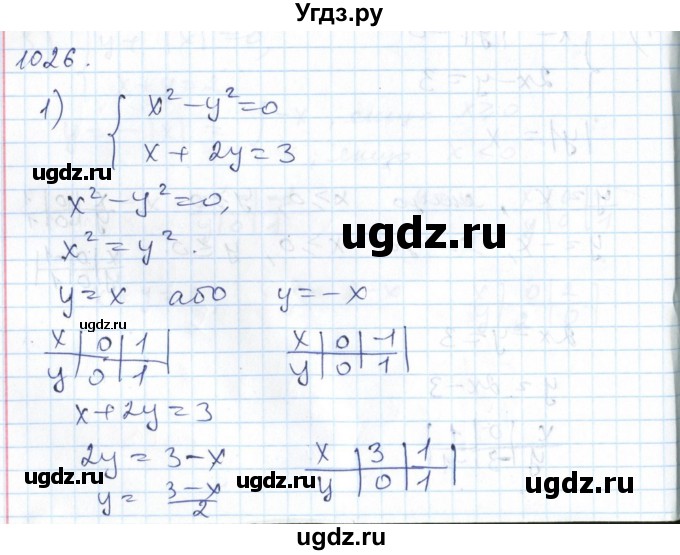 Угдз.ру
1026.
1) { x² − y² = 0
x + 2y = 3
ugdz.ru
x² − y² = 0,
ugdz.ru
x² = y².
y = x або y = −x
ugdz.ru
x | 0 | 1 | x | 0 | -1 |
y | 0 | 1 | y | 0 | 1 |
x + 2y = 3
2y = 3 − x x | 3 | 1 |
y = (3−x)/2 y | 0 | 1 |
ugdz.ru ugdz.ru ugdz.ru